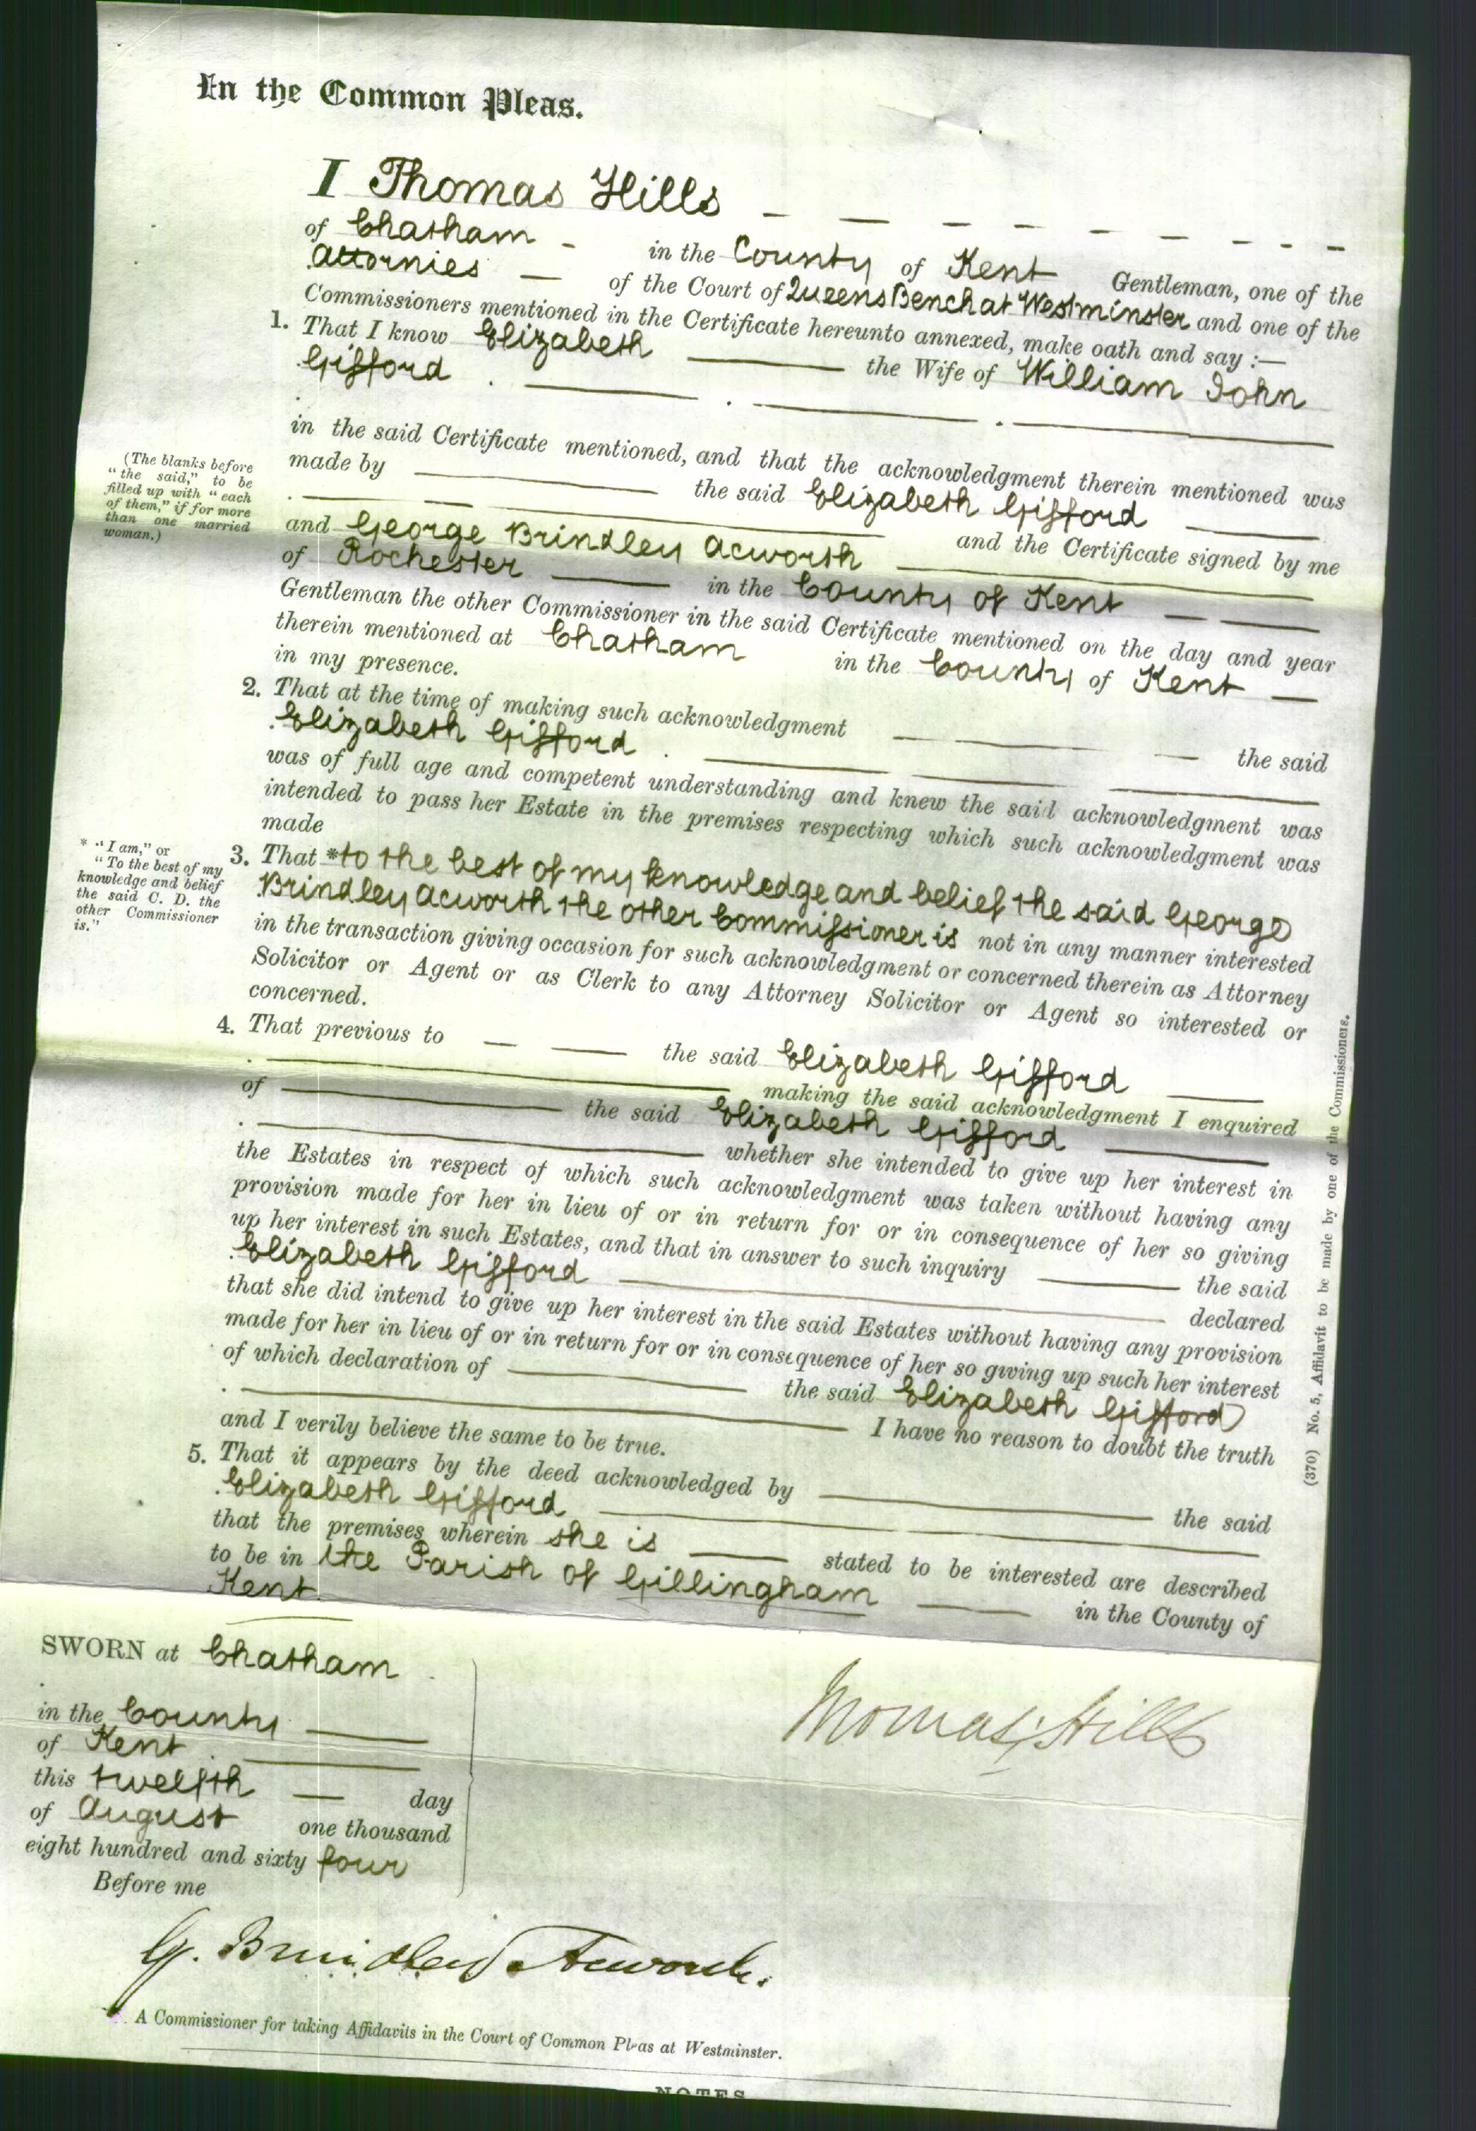 In the Common Pleas.
I Thomas Hills
of Chatham in the County of Kent Gentleman, one of the
Attornies of the Court of Queens Bench at Westminster and one of the
Commissioners mentioned in the Certificate hereunto annexed, make oath and say :—
1. That I know Elizabeth the Wife of William John
Gifford
in the said Certificate mentioned, and that the acknowledgment therein mentioned was
made by the said Elizabeth Gifford
(The blanks before
"the said," to be
filled up with "each
of them," if for more
than one married
woman.)
and the Certificate signed by me
and George Brindley Acworth
of Rochester in the County of Kent
Gentleman the other Commissioner in the said Certificate mentioned on the day and year
therein mentioned at Chatham in the County of Kent
in my presence.
2. That at the time of making such acknowledgment the said
Elizabeth Gifford
was of full age and competent understanding and knew the said acknowledgment was
intended to pass her Estate in the premises respecting which such acknowledgment was
made
* "I am," or
"To the best of my
knowledge and belief
the said C. D. the
other Commissioner
is."
3. That *to the best of my knowledge and belief the said George
Brindley Acworth the other Commissioner is not in any manner interested
in the transaction giving occasion for such acknowledgment or concerned therein as Attorney
Solicitor or Agent or as Clerk to any Attorney Solicitor or Agent so interested or
concerned.
4. That previous to the said Elizabeth Gifford
making the said acknowledgment I enquired
of the said Elizabeth Gifford
whether she intended to give up her interest in
the Estates in respect of which such acknowledgment was taken without having any
provision made for her in lieu of or in return for or in consequence of her so giving
up her interest in such Estates, and that in answer to such inquiry the said
Elizabeth Gifford declared
that she did intend to give up her interest in the said Estates without having any provision
made for her in lieu of or in return for or in consequence of her so giving up such her interest
of which declaration of the said Elizabeth Gifford
I have no reason to doubt the truth
and I verily believe the same to be true.
5. That it appears by the deed acknowledged by the said
Elizabeth Gifford
that the premises wherein she is stated to be interested are described
to be in the Parish of Gillingham in the County of
Kent
(370) No. 5, Affidavit to be made by one of the Commissioners.
SWORN at Chatham
in the County
of Kent
this twelfth day
of August one thousand
eight hundred and sixty four
Before me
Thomas Hills
G. Brindley Acworth.
A Commissioner for taking Affidavits in the Court of Common Pleas at Westminster.
NOTES